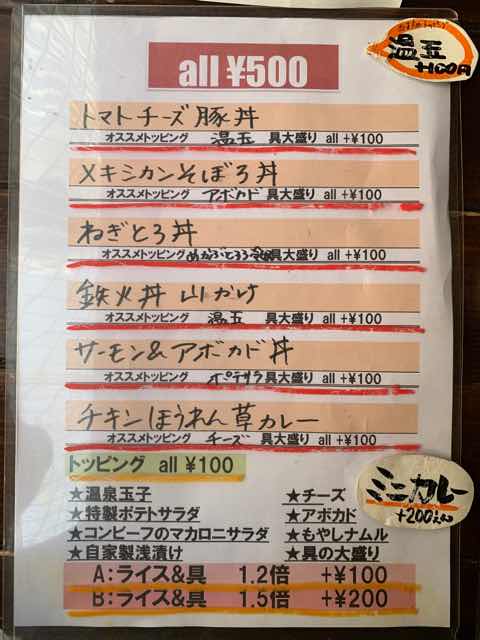 all ¥500
温玉
+100円
トマトチーズ豚丼
オススメトッピング 温玉 具大盛り all +¥100
メキシカンそぼろ丼
オススメトッピング アボカド 具大盛り all +¥100
ねぎとろ丼
オススメトッピング めかぶとろろ 具大盛り all +¥100
鉄火丼 山かけ
オススメトッピング 温玉 具大盛り all +¥100
サーモン&アボカド丼
オススメトッピング ポテサラ 具大盛り all +¥100
チキンほうれん草カレー
オススメトッピング チーズ 具大盛り all +¥100
トッピング all ¥100
★温泉玉子
★特製ポテトサラダ
★コンビーフのマカロニサラダ
★自家製浅漬け
★チーズ
★アボカド
★もやしナムル
★具の大盛り
ミニカレー
+200えん
A:ライス&具 1.2倍 +¥100
B:ライス&具 1.5倍 +¥200